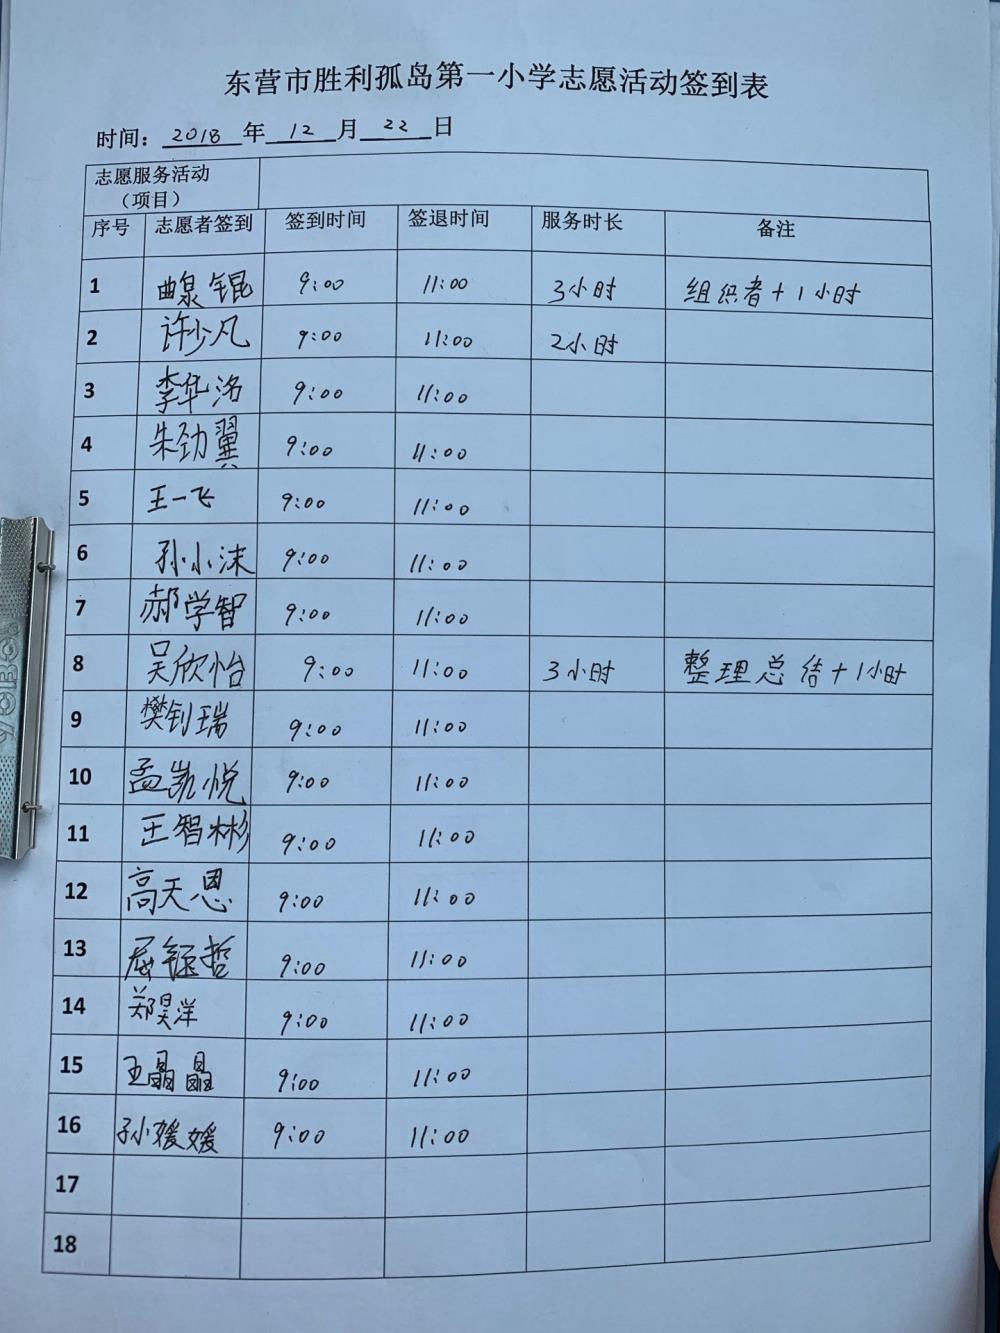 东营市胜利孤岛第一小学志愿活动签到表
时间： 2018 年 12 月 22 日
志愿服务活动
（项目）
序号 志愿者签到 签到时间 签退时间 服务时长 备注
1 曲泉锟 9:00 11:00 3小时 组织者+1小时
2 许少凡 9:00 11:00 2小时
3 李华洛 9:00 11:00
4 朱劲翼 9:00 11:00
5 王一飞 9:00 11:00
6 孙小沫 9:00 11:00
7 郝学智 9:00 11:00
8 吴欣怡 9:00 11:00 3小时 整理总结+1小时
9 樊钊瑞 9:00 11:00
10 孟凯悦 9:00 11:00
11 王智彬 9:00 11:00
12 高天恩 9:00 11:00
13 9:00 11:00
14 郑昊洋 9:00 11:00
15 王晶晶 9:00 11:00
16 孙媛媛 9:00 11:00
17
18